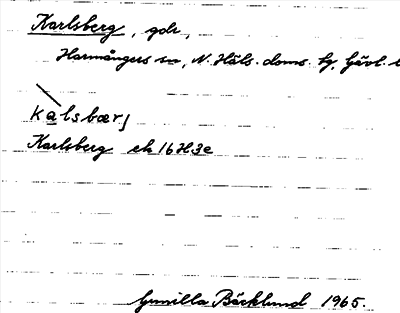 Karlsberg, gdr,
Harmångers sn, N. Häls. doms. hg, Gävl. l
kalsbærj
Karlsberg ek 16H3e
Gunilla Bäcklund 1965.